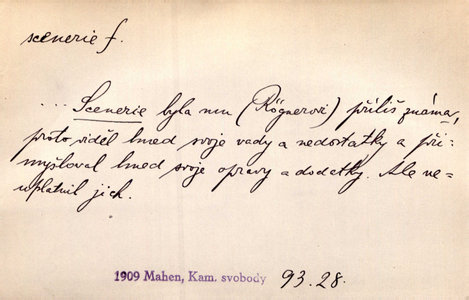 scenerie f.
... Scenerie byla mu (Rögnerovi) příliš známa,
proto viděl hned svoje vady a nedostatky a při=
myšloval hned svoje opravy a dodatky. Ale ne=
uplatnil jich.
1909 Mahen, Kam. svobody 93.28.